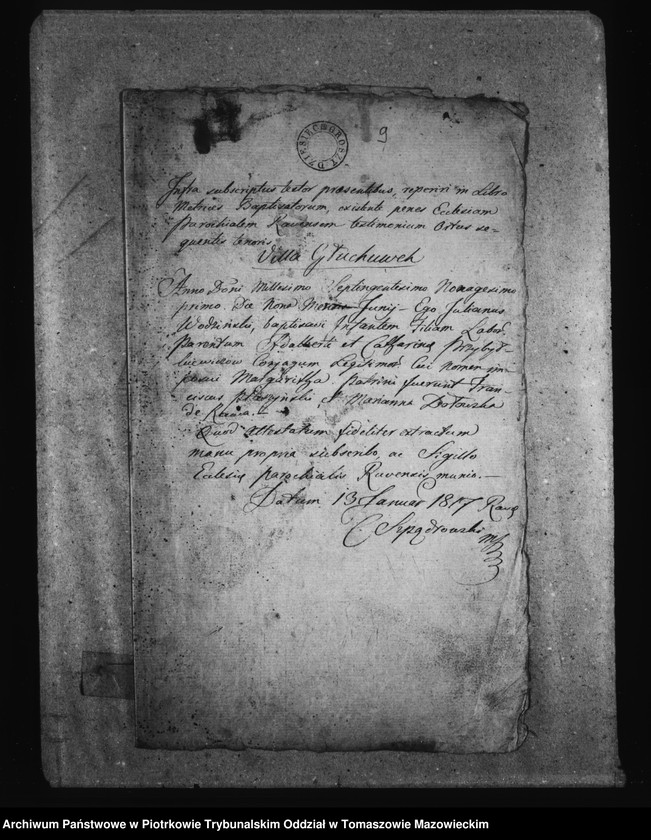 DZIESIĘC GROSZY
9
Infra subscriptus testor praesentibus, reperiri in Libro
Metrices Baptisatorum, existente penes Ecclesiam
Parochialem Ravensem testimonium Ortus se-
quentis tenoris
Villa Głuchuwek
Anno Dńi Millesimo Septingentesimo Nonagesimo
primo. Die Nona Junij. Ego Julianus
Wodziński, baptisavi Infantem Filiam Labor
Parentum Adalberti et Catharina Przybył-
kiewiczow Conjugum Legitimor Cui nomen im
posui Margaritha. Patrini fuerunt Fran-
ciscus et Marianna
de Rawa.
Quod attestatum fideliter extractum
manu propria subscribo, ac Sigillo
Ecclesię parochialis Ravensis munio.
Datum 13 Januar 1817 Ravę
C Szpądrowski
mp
Archiwum Państwowe w Piotrkowie Trybunalskim Oddział w Tomaszowie Mazowieckim